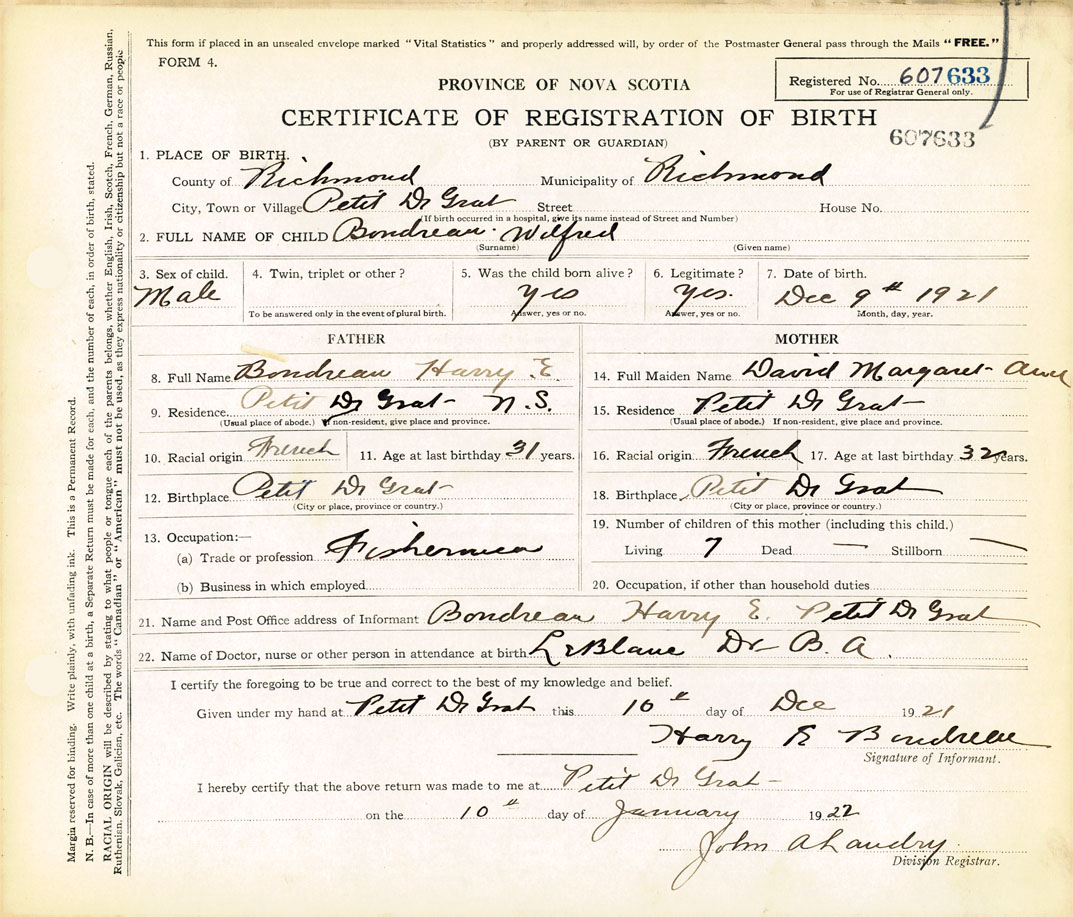 This form if placed in an unsealed envelope marked "Vital Statistics" and properly addressed will, by order of the Postmaster General pass through the Mails "FREE."
FORM 4.
Registered No. 607633
For use of Registrar General only.
PROVINCE OF NOVA SCOTIA
CERTIFICATE OF REGISTRATION OF BIRTH
607633
(BY PARENT OR GUARDIAN)
1. PLACE OF BIRTH.
County of Richmond Municipality of Richmond
City, Town or Village Petit De Grat Street House No.
(If birth occurred in a hospital, give its name instead of Street and Number)
2. FULL NAME OF CHILD Boudreau Wilfred
(Surname) (Given name)
3. Sex of child. 4. Twin, triplet or other? 5. Was the child born alive? 6. Legitimate? 7. Date of birth.
Male Yes Yes. Dec 9th 1921
To be answered only in the event of plural birth. Answer, yes or no. Answer, yes or no. Month, day, year.
FATHER MOTHER
8. Full Name Boudreau Harry E. 14. Full Maiden Name David Margaret
9. Residence Petit De Grat N.S. 15. Residence Petit De Grat
(Usual place of abode.) If non-resident, give place and province. (Usual place of abode.) If non-resident, give place and province.
10. Racial origin French 11. Age at last birthday 31 years. 16. Racial origin French 17. Age at last birthday 32 years.
12. Birthplace Petit De Grat 18. Birthplace Petit De Grat
(City or place, province or country.) (City or place, province or country.)
13. Occupation:— 19. Number of children of this mother (including this child.)
(a) Trade or profession Fisherman Living 7 Dead — Stillborn —
(b) Business in which employed 20. Occupation, if other than household duties
21. Name and Post Office address of Informant Boudreau Harry E. Petit De Grat
22. Name of Doctor, nurse or other person in attendance at birth LeBlanc Dr B. A.
I certify the foregoing to be true and correct to the best of my knowledge and belief.
Given under my hand at Petit De Grat this 10th day of Dec 1921
Harry E Boudreau
Signature of Informant.
I hereby certify that the above return was made to me at Petit De Grat
on the 10th day of January 1922
John A Landry
Division Registrar.
Margin reserved for binding. Write plainly, with unfading ink. This is a Permanent Record.
N. B.—In case of more than one child at a birth, a Separate Return must be made for each, and the number of each, in order of birth, stated.
RACIAL ORIGIN will be described by stating to what people or tongue each of the parents belongs, whether English, Irish, Scotch, French, German, Russian,
Ruthenian, Slovak, Galician, etc. The words "Canadian" or "American" must not be used, as they express nationality or citizenship but not a race or people